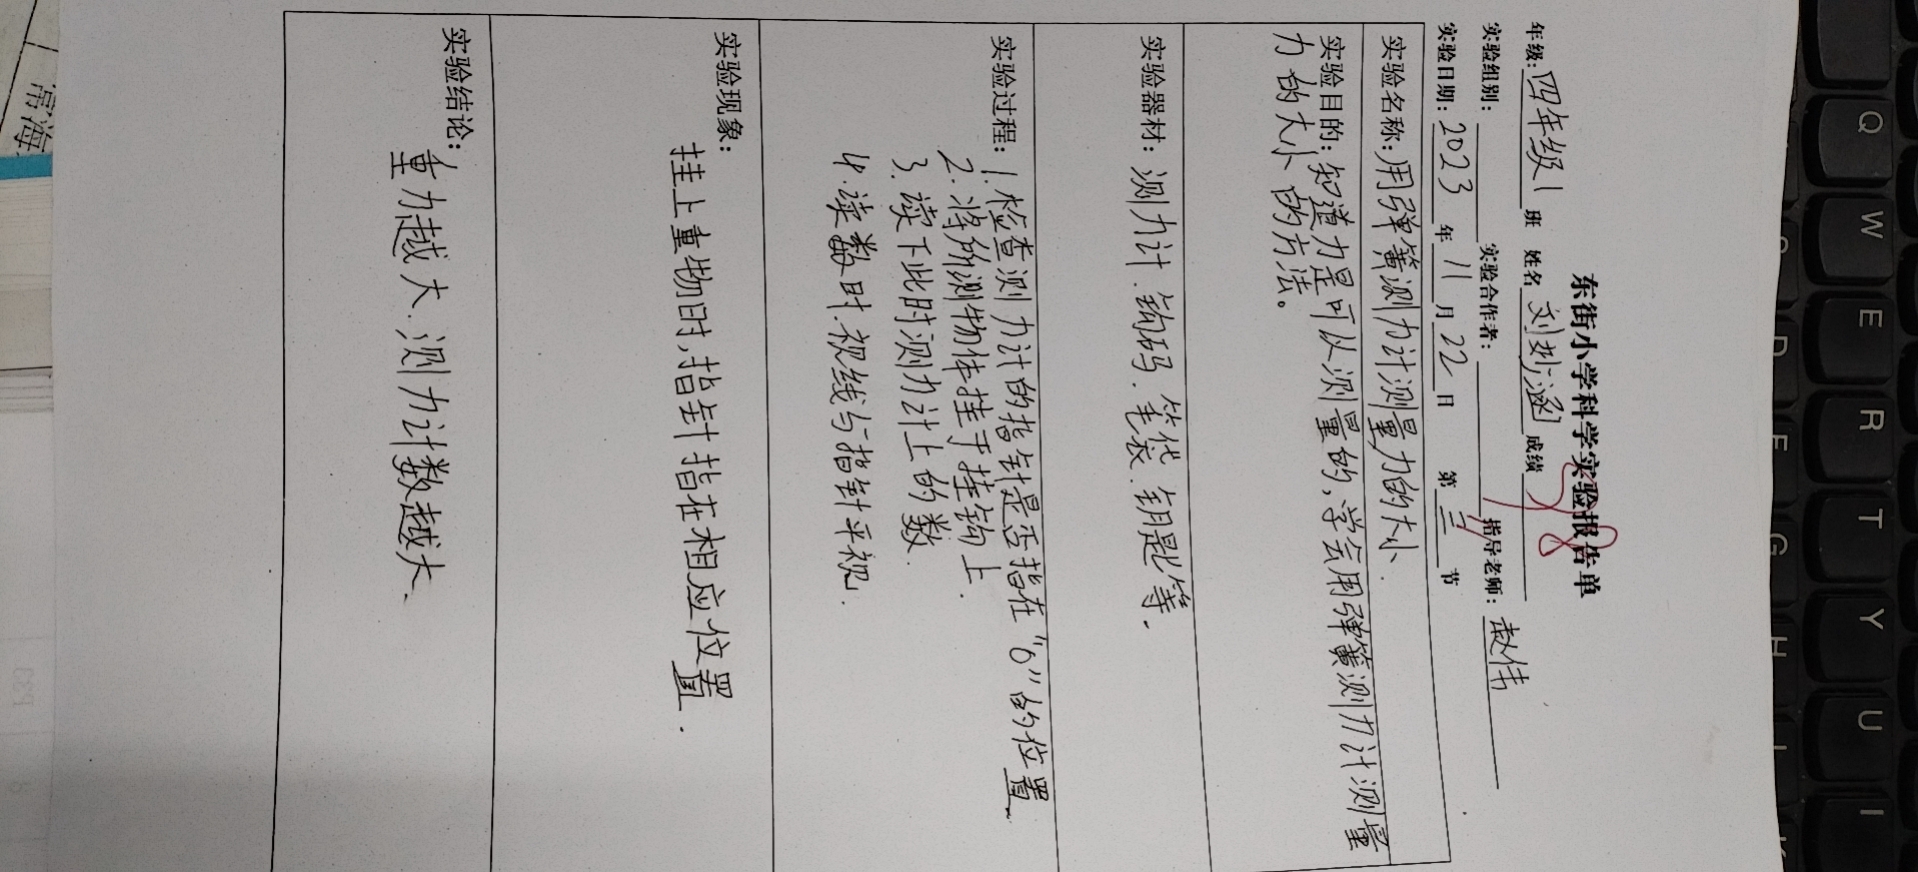 东街小学科学实验报告单
年级：四年级1班 姓名 刘彭涵 成绩 98
实验组别： 实验合作者： 指导老师：赵伟
实验日期：2023年11月22日 第三节
实验名称：用弹簧测力计测量力的大小.
实验目的：知道力是可以测量的，学会用弹簧测力计测量
力的大小的方法。
实验器材：测力计.钩码.笔袋.钥匙等.
实验过程：1.检查测力计的指针是否指在“0”的位置
2.将所测物体挂于挂钩上.
3.读下此时测力计上的数
4.读数时.视线与指针平视.
实验现象：
挂上重物时,指针指在相应位置.
实验结论：
重力越大.测力计数越大.
Q
W
E
R
T
Y
U
I
D
F
G
H
常海